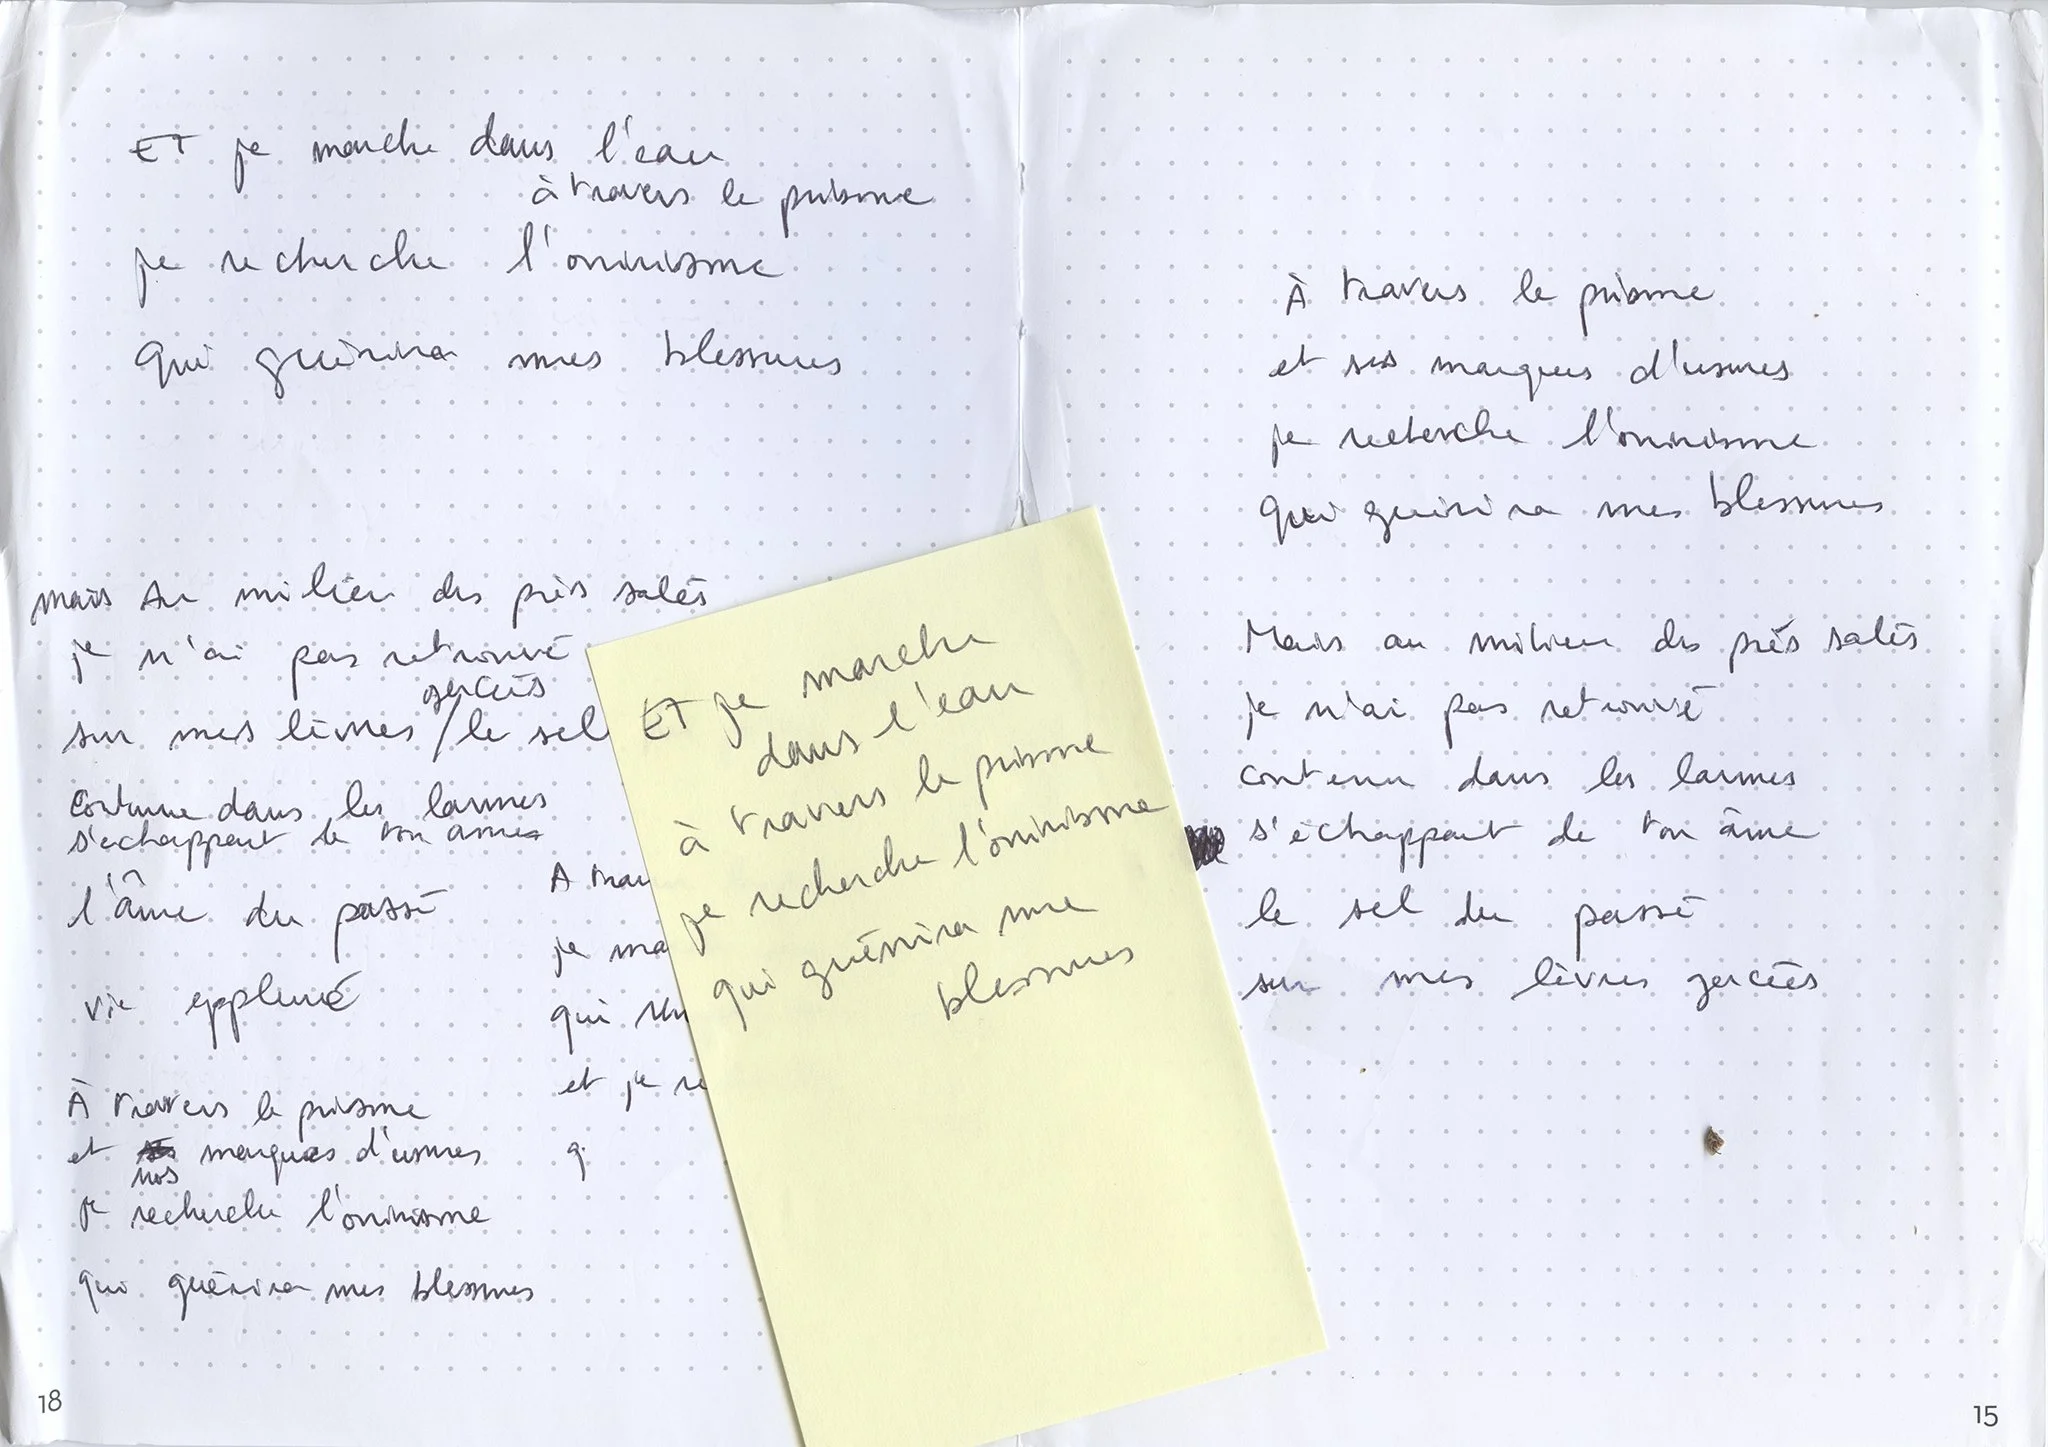 ET je marche dans l'eau
à travers le prisme
je recherche l'onirisme
qui guérira mes blessures
mais Au milieu des près salés
je n'ai pas retrouvé
gercées
sur mes lèvres / le sel
contenue dans les larmes
s'echappant de ton ame
l'âme du passé
vie
À travers le prisme
et nos marques d'usures
je recherche l'onirisme
qui guérira mes blessures
A trav
je ma
qui
et je re
q
ET je marche
dans l'eau
à travers le prisme
je recherche l'onirisme
qui guérira me
blessures
À travers le prisme
et ses marques d'usures
je recherche l'onirisme
qui guérira mes blessures
Mais au milieu des près salés
je n'ai pas retrouvé
contenu dans les larmes
s'échappant de ton âme
le sel du passé
sur mes lèvres gercées
18
15